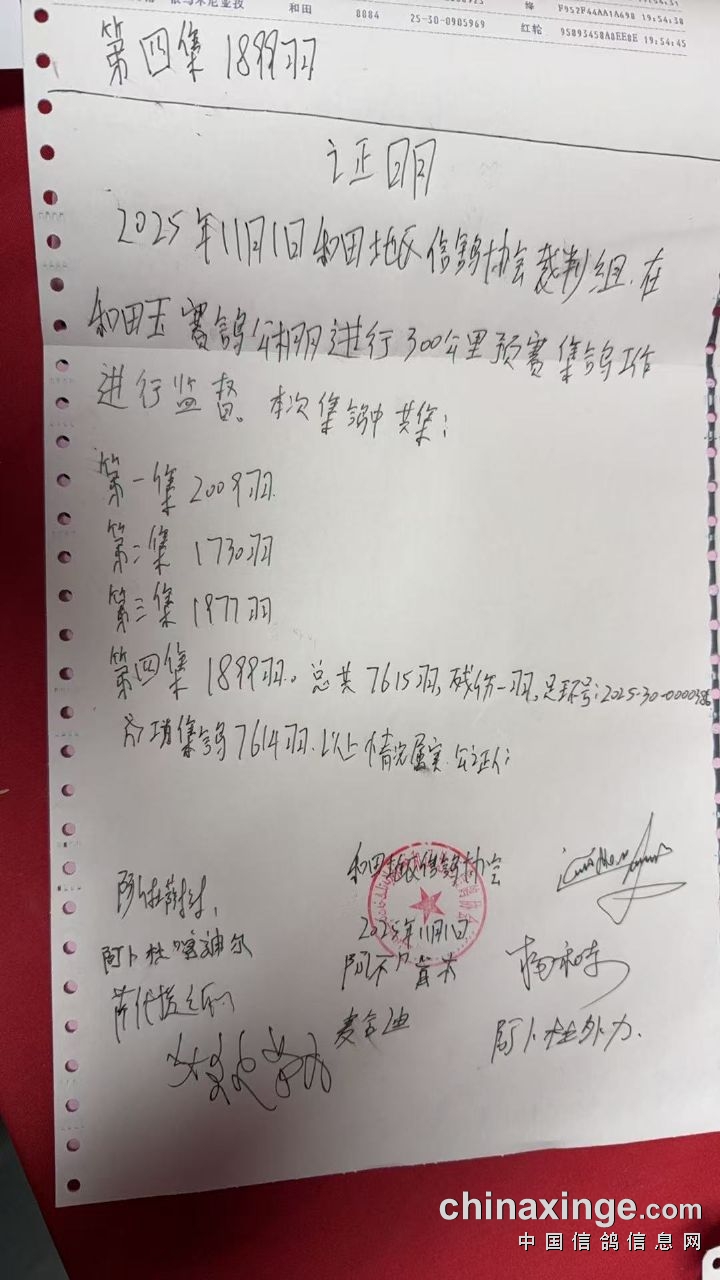 和田 8084 25-30-0905969 绛 F952F44AA1A698 19:54:38
红轮 95893458A8EE8E 19:54:45
第四集 1899羽
证明
2025年11月1日和田地区信鸽协会裁判组.在
和田玉赛鸽公棚进行300公里预赛集鸽工作
进行监督。本次集鸽中共集:
第一集 2009羽.
第二集 1730羽
第三集 1977羽
第四集 1899羽。总共7615羽,残伤一羽,足环号:2025-30-0000386
成功集鸽7614羽.以上情况属实.公证人:
和田地区信鸽协会
2025年11月1日
阿卜杜喀迪尔
麦合迪
阿卜杜外力.
chinaxinge.com
中国信鸽信息网